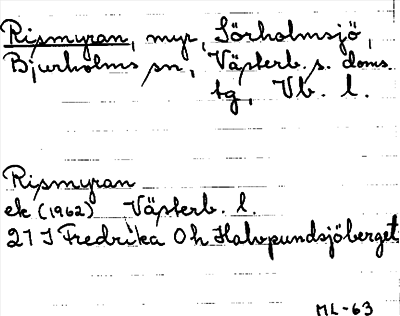 Rismyran, myr, Sörholmsjö,
Bjurholms sn, Västerb. s. doms
tg, Vb. l.
Rismyran
ek (1962) Västerb. l.
21 J Fredrika 0 h Halvpundsjöberget
ML-63